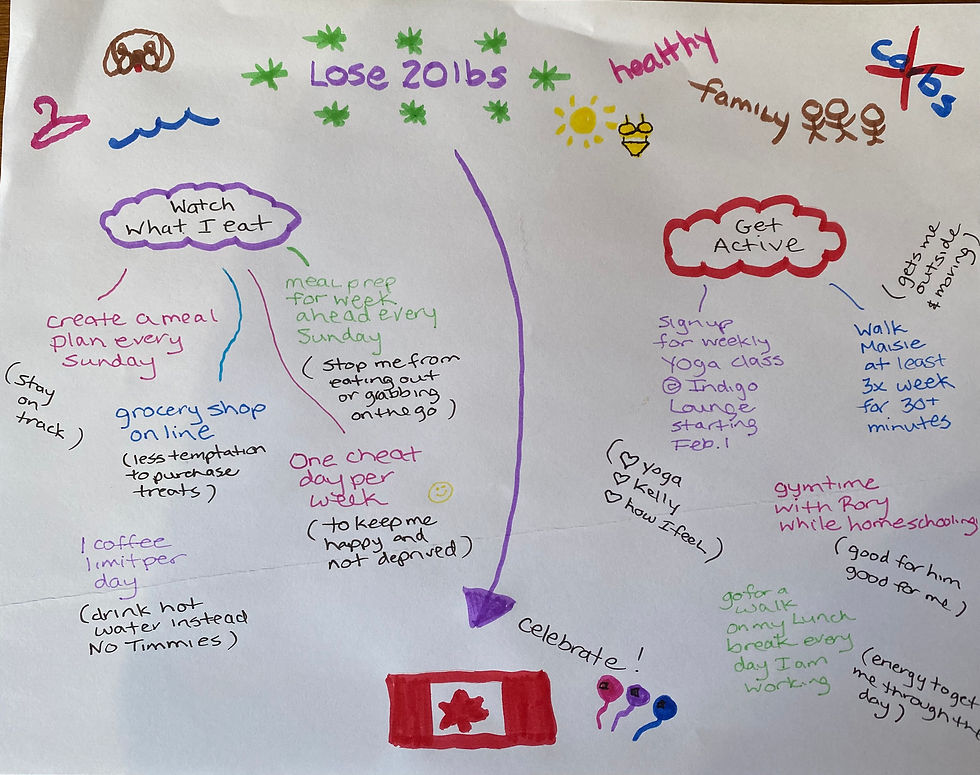 Lose 20lbs
healthy
family
carbs
Watch
What I eat
create a meal
plan every
Sunday
(stay
on
track)
grocery shop
online
(less temptation
to purchase
treats)
meal prep
for week
ahead every
Sunday
(stop me from
eating out
or grabbing
on the go)
One cheat
day per
week
(to keep me
happy and
not deprived)
1 coffee
limit per
day
(drink hot
water instead
No Timmies)
Get
Active
sign up
for weekly
Yoga class
@ Indigo
Lounge
starting
Feb. 1
(♡ Yoga
♡ Kelly
♡ how I feel)
Walk
Maisie
at least
3x week
for 30+
minutes
(gets me
outside
& moving)
gym time
with Rory
while homeschooling
(good for him
good for me)
go for a
walk
on my Lunch
break every
day I am
working
(energy to get
me through the
day)
celebrate!